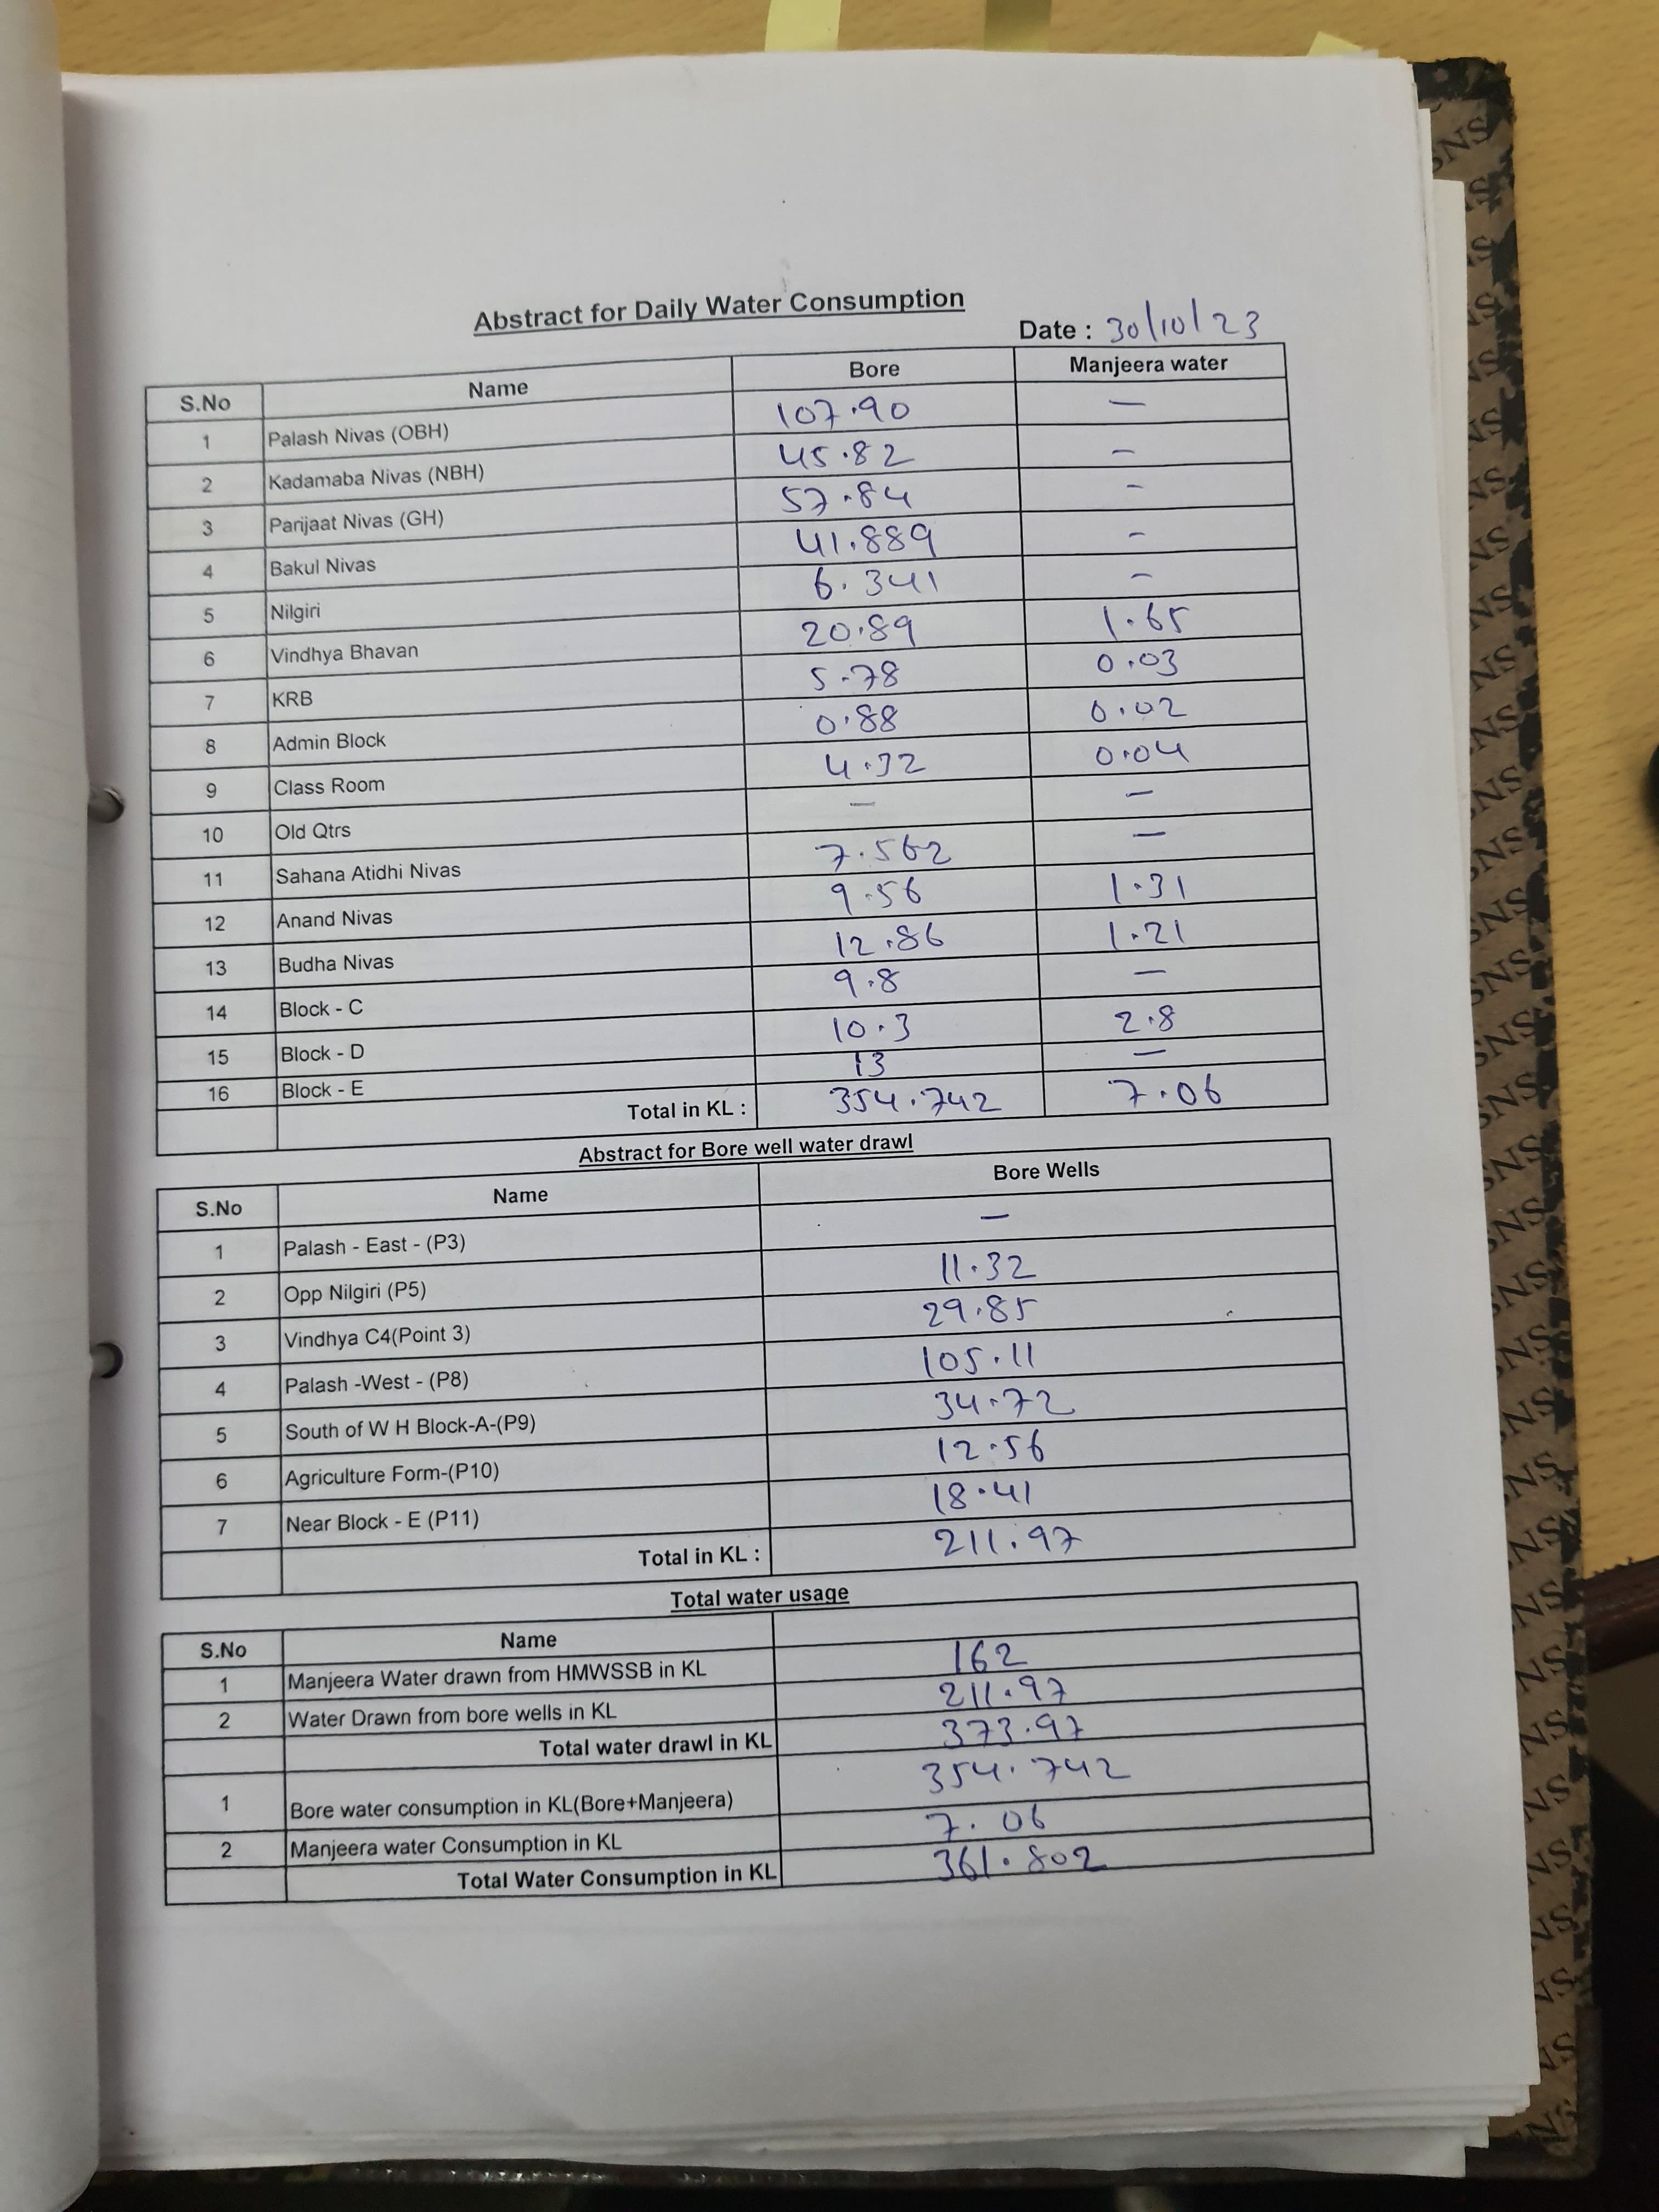 Abstract for Daily Water Consumption
Date : 30/10/23
S.No Name Bore Manjeera water
1 Palash Nivas (OBH) 107.90 —
2 Kadamaba Nivas (NBH) 45.82 –
3 Parijaat Nivas (GH) 57.84 –
4 Bakul Nivas 41.889 –
5 Nilgiri 6.341 –
6 Vindhya Bhavan 20.89 1.65
7 KRB 5.78 0.03
8 Admin Block 0.88 0.02
9 Class Room 4.32 0.04
10 Old Qtrs — —
11 Sahana Atidhi Nivas 7.562 —
12 Anand Nivas 9.56 1.31
13 Budha Nivas 12.86 1.21
14 Block - C 9.8 —
15 Block - D 10.3 2.8
16 Block - E 13 —
Total in KL : 354.742 7.06
Abstract for Bore well water drawl
S.No Name Bore Wells
1 Palash - East - (P3) —
2 Opp Nilgiri (P5) 11.32
3 Vindhya C4(Point 3) 29.85
4 Palash -West - (P8) 105.11
5 South of W H Block-A-(P9) 34.72
6 Agriculture Form-(P10) 12.56
7 Near Block - E (P11) 18.41
Total in KL : 211.97
Total water usage
S.No Name
1 Manjeera Water drawn from HMWSSB in KL 162
2 Water Drawn from bore wells in KL 211.97
Total water drawl in KL 373.97
1 Bore water consumption in KL(Bore+Manjeera) 354.742
2 Manjeera water Consumption in KL 7.06
Total Water Consumption in KL 361.802